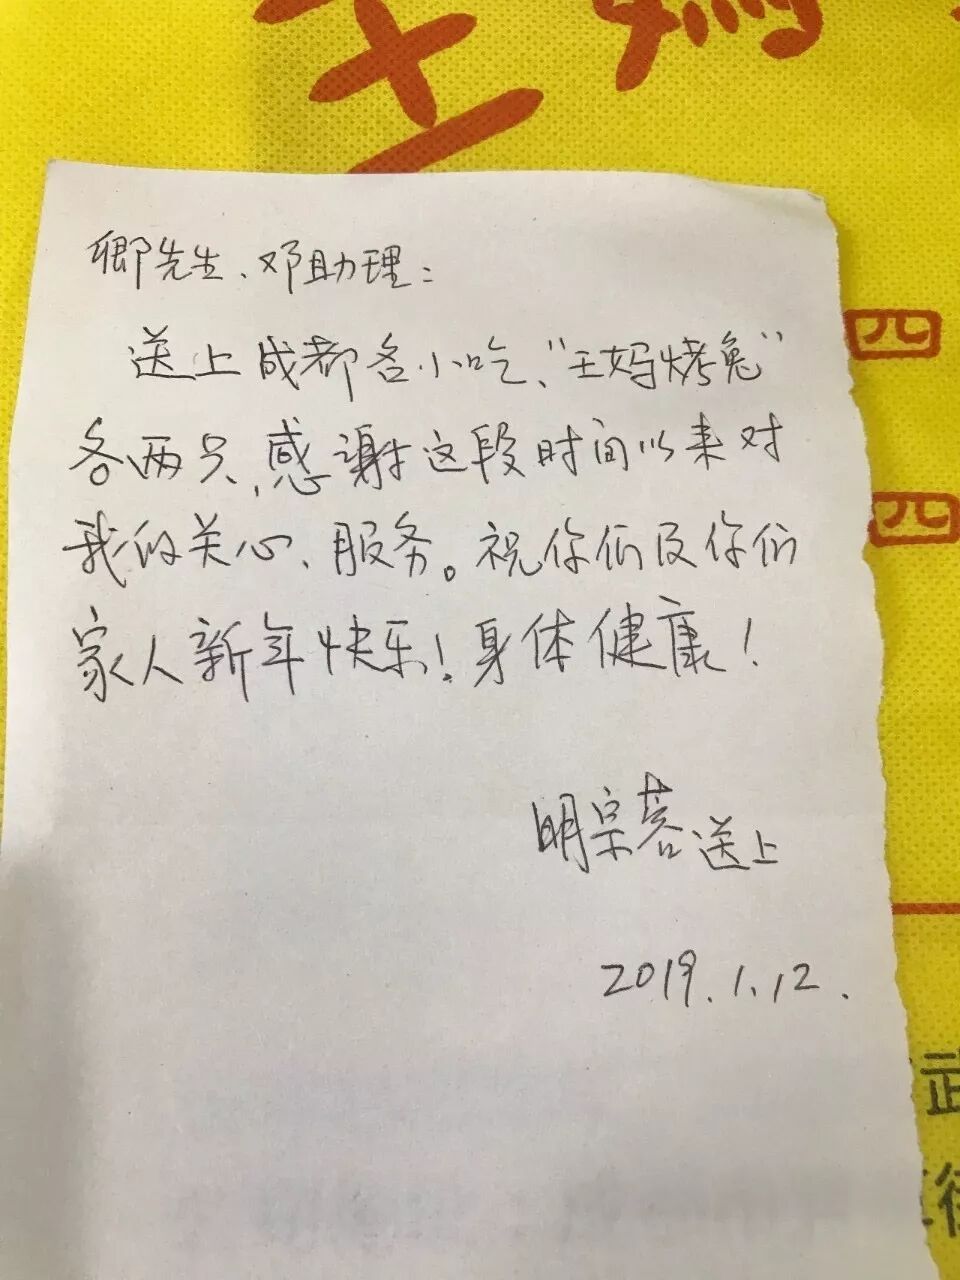 王妈
卿先生、邓助理：
送上成都名小吃、"王妈烤兔"
各两只，感谢这段时间以来对
我的关心、服务。祝你们及你们
家人新年快乐！身体健康！
明宗蓉送上
2019.1.12.
四
四
武